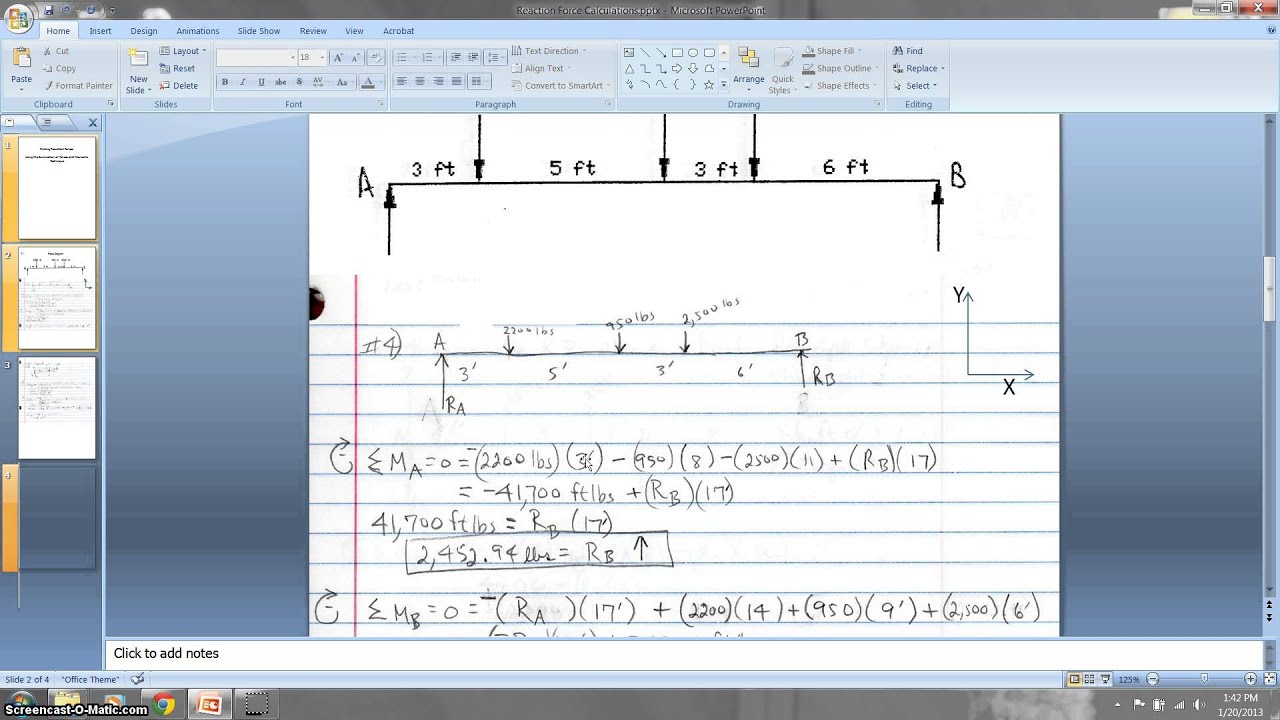 Reaction Force Calculations.pptx - Microsoft PowerPoint
Home Insert Design Animations Slide Show Review View Acrobat
Paste
Cut
Copy
Format Painter
Clipboard
New Slide
Layout
Reset
Delete
Slides
18
B I U abc S AV Aa A
Font
Text Direction
Align Text
Convert to SmartArt
Paragraph
Arrange
Quick Styles
Shape Fill
Shape Outline
Shape Effects
Drawing
Find
Replace
Select
Editing
1
2
3
4
A 3 ft 5 ft 3 ft 6 ft B
Y
X
#4) A 2200 lbs 950 lbs 2,500 lbs B
3' 5' 3' 6'
RA RB
ΣMA = 0 = -(2200 lbs)(3') - (950)(8) - (2500)(11) + (RB)(17)
= -41,700 ft lbs + (RB)(17')
41,700 ft lbs = RB (17')
2,452.94 lbs = RB ↑
ΣMB = 0 = -(RA)(17') + (2200)(14) + (950)(9') + (2,500)(6')
Click to add notes
Slide 2 of 4 "Office Theme" 125%
1:42 PM
1/20/2013
Screencast-O-Matic.com